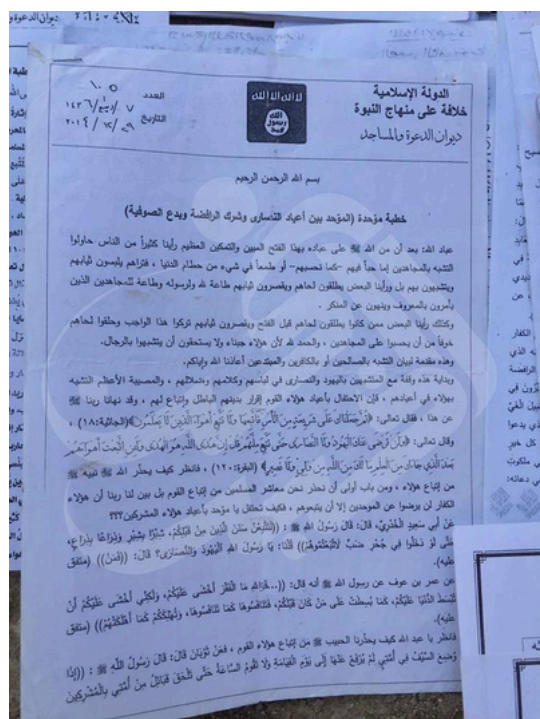 الدولة الإسلامية
خلافة على منهاج النبوة
ديوان الدعوة والمساجد
لا اله الا الله
الله
رسول
محمد
العدد ١٠٥
التاريخ ٧ / ربيع١ / ١٤٣٦
٢٠١٤ / ١٢ / ٢٩
بسم الله الرحمن الرحيم
خطبة موحدة (الموحد بين أعياد النصارى وشرك الرافضة وبدع الصوفية)
عباد الله: بعد أن من الله ﷻ على عباده بهذا الفتح المبين والتمكين العظيم رأينا كثيراً من الناس حاولوا
التشبه بالمجاهدين إما حباً فيهم -كما نحسبهم- أو طمعاً في شيء من حطام الدنيا ، فتراهم يلبسون ثيابهم
ويتشبهون بهم بل ورأينا البعض يطلقون لحاهم ويقصرون ثيابهم طاعة لله ولرسوله وطاعة للمجاهدين الذين
يأمرون بالمعروف وينهون عن المنكر .
وكذلك رأينا البعض ممن كانوا يطلقون لحاهم قبل الفتح ويقصرون ثيابهم تركوا هذا الواجب وحلقوا لحاهم
خوفاً من أن يحسبوا على المجاهدين ، والحمد لله لأن هؤلاء جبناء ولا يستحقون أن يتشبهوا بالرجال.
وهذه مقدمة لبيان التشبه بالصالحين أو بالكافرين والمبتدعين أعاذنا الله وإياكم.
وبداية هذه وقفة مع المتشبهين باليهود والنصارى في لباسهم وكلامهم وضلالهم ، والمصيبة الأعظم التشبه
بهؤلاء في أعيادهم ، فإن الاحتفال بأعياد هؤلاء القوم إقرار بدينهم الباطل وإتباع لهم ، وقد نهانا ربنا ﷻ
عن هذا ، فقال تعالى: ﴿ثُمَّ جَعَلْنَاكَ عَلَى شَرِيعَةٍ مِنَ الْأَمْرِ فَاتَّبِعْهَا وَلَا تَتَّبِعْ أَهْوَاءَ الَّذِينَ لَا يَعْلَمُونَ﴾(الجاثية:١٨) ،
وقال تعالى: ﴿وَلَنْ تَرْضَى عَنْكَ الْيَهُودُ وَلَا النَّصَارَى حَتَّى تَتَّبِعَ مِلَّتَهُمْ قُلْ إِنَّ هُدَى اللَّهِ هُوَ الْهُدَى وَلَئِنِ اتَّبَعْتَ أَهْوَاءَهُمْ
بَعْدَ الَّذِي جَاءَكَ مِنَ الْعِلْمِ مَا لَكَ مِنَ اللَّهِ مِنْ وَلِيٍّ وَلَا نَصِيرٍ﴾ (البقرة:١٢٠) ، فانظر كيف يحذر الله ﷻ نبيه ﷺ
من إتباع هؤلاء ، ومن باب أولى أن نحذر نحن معاشر المسلمين من إتباع القوم بل بين لنا ربنا أن هؤلاء
الكفار لن يرضوا عن الموحدين إلا أن يتبعوهم ، فكيف تحتفل يا مؤحد بأعياد هؤلاء المشركين؟؟؟
عَنْ أَبِي سَعِيدٍ الْخُدْرِيِّ، قَالَ: قَالَ رَسُولُ اللهِ ﷺ : ((لَتَتَّبِعُنَّ سَنَنَ الَّذِينَ مِنْ قَبْلِكُمْ، شِبْرًا بِشِبْرٍ وَذِرَاعًا بِذِرَاعٍ،
حَتَّى لَوْ دَخَلُوا فِي جُحْرِ ضَبٍّ لَاتَّبَعْتُمُوهُمْ)) قُلْنَا: يَا رَسُولَ اللهِ الْيَهُودُ وَالنَّصَارَى؟ قَالَ: ((فَمَنْ)) (متفق
عليه).
عن عمر بن عوف عن رسول الله ﷺ أنه قال: ((...فَوَاللهِ مَا الْفَقْرَ أَخْشَى عَلَيْكُمْ، وَلَكِنِّي أَخْشَى عَلَيْكُمْ أَنْ
تُبْسَطَ الدُّنْيَا عَلَيْكُمْ، كَمَا بُسِطَتْ عَلَى مَنْ كَانَ قَبْلَكُمْ، فَتَنَافَسُوهَا كَمَا تَنَافَسُوهَا، وَتُهْلِكَكُمْ كَمَا أَهْلَكَتْهُمْ)) (متفق
عليه).
فانظر يا عبد الله كيف يحذرنا الحبيب ﷺ من إتباع هؤلاء القوم ، فعن ثَوْبَانَ قَالَ: قَالَ رَسُولُ اللهِ ﷺ : ((إِذَا
وُضِعَ السَّيْفُ فِي أُمَّتِي لَمْ يُرْفَعْ عَنْهَا إِلَى يَوْمِ الْقِيَامَةِ وَلَا تَقُومُ السَّاعَةُ حَتَّى تَلْحَقَ قَبَائِلُ مِنْ أُمَّتِي بِالْمُشْرِكِينَ